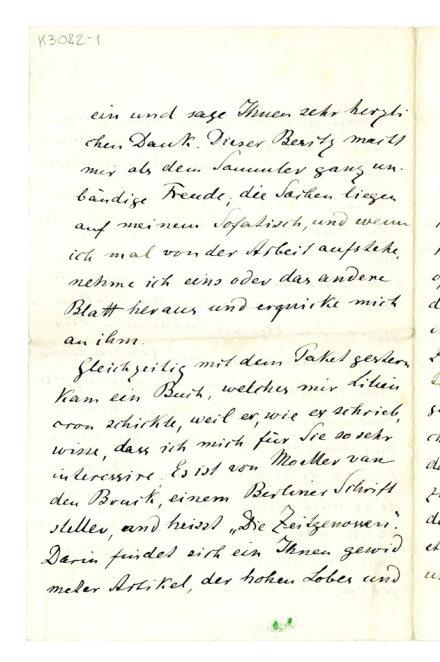 K3082-1
ein und sage Ihnen sehr herzli
chen Dank. Dieser Besitz macht
mir als dem Sammler ganz un-
bändige Freude, die Sachen liegen
auf meinem Sofatisch, und wenn
ich mal von der Arbeit aufstehe,
nehme ich eins oder das andere
Blatt heraus und erquicke mich
an ihm.
Gleichzeitig mit dem Paket gestern
kam ein Buch, welches mir Lilien
cron schickte, weil er, wie er schrieb,
wisse, dass ich mich für Sie so sehr
interessire. Es ist von Moeller van
den Bruck, einem Berliner Schrift
steller, und heisst „Die Zeitgenossen“.
Darin findet sich ein Ihnen gewid
meter Artikel, der hohen Lobes und